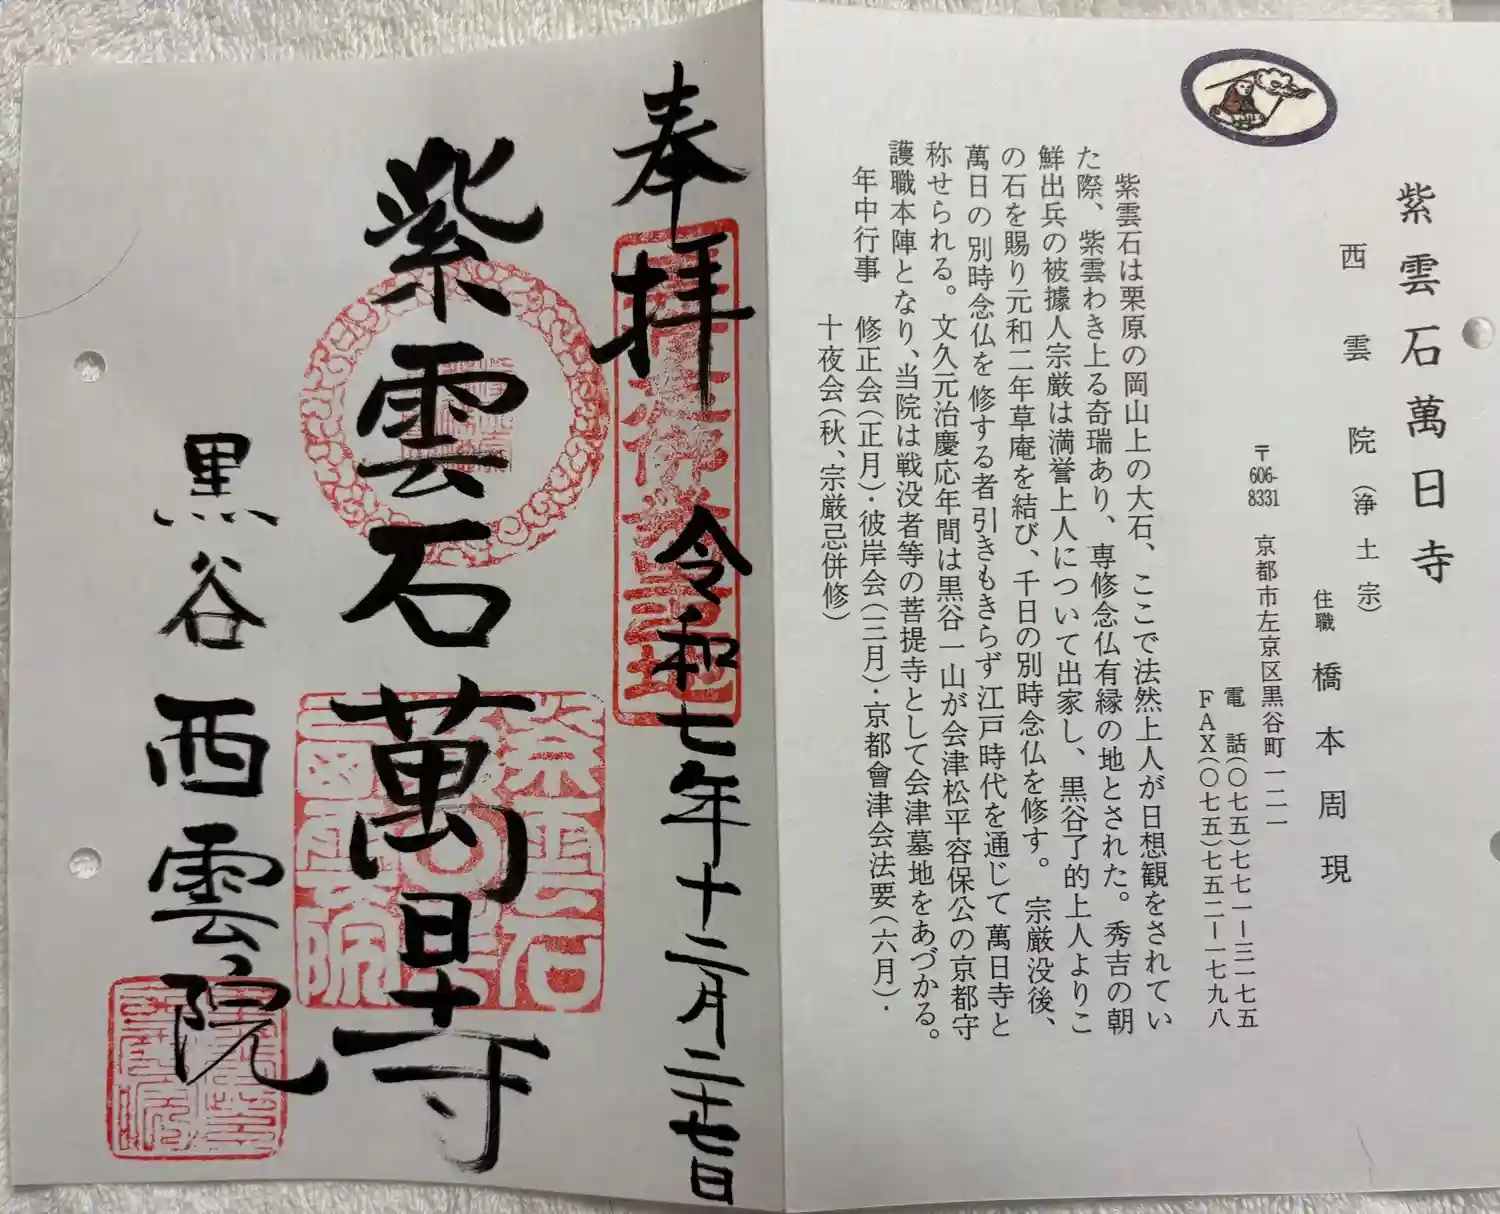 紫雲石萬日寺
西雲院(浄土宗)
住職 橋本周現
〒606-8331 京都市左京区黒谷町一二一
電話(〇七五)七七一ー三一七五
FAX(〇七五)七五二ー一七九八
紫雲石は栗原の岡山上の大石、ここで法然上人が日想観をされてい
た際、紫雲わき上る奇瑞あり、専修念仏有縁の地とされた。秀吉の朝
鮮出兵の被據人宗厳は満誉上人について出家し、黒谷了的上人よりこ
の石を賜り元和二年草庵を結び、千日の別時念仏を修す。宗厳没後、
萬日の別時念仏を修する者引きもきらず江戸時代を通じて萬日寺と
称せられる。文久元治慶応年間は黒谷一山が会津松平容保公の京都守
護職本陣となり、当院は戦没者等の菩提寺として会津墓地をあづかる。
年中行事 修正会(正月)・彼岸会(三月)・京都會津会法要(六月)・
十夜会(秋、宗厳忌併修)
奉拝
令和七年十二月二十七日
紫雲石萬日寺
黒谷西雲院
紫雲石
西雲院